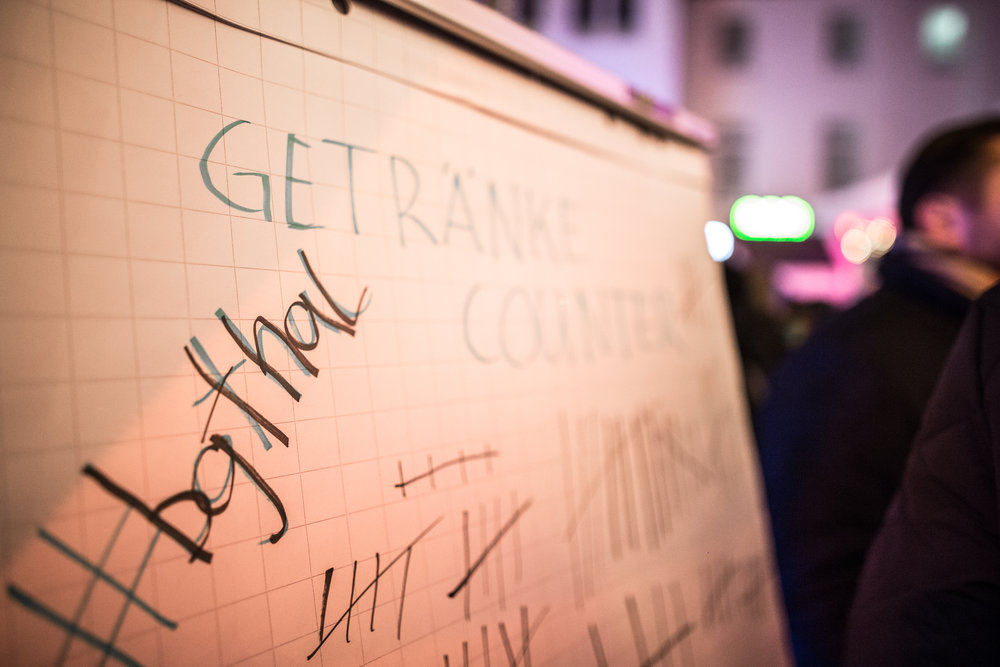 GETRÄNKE
COUNTER
#bgthal